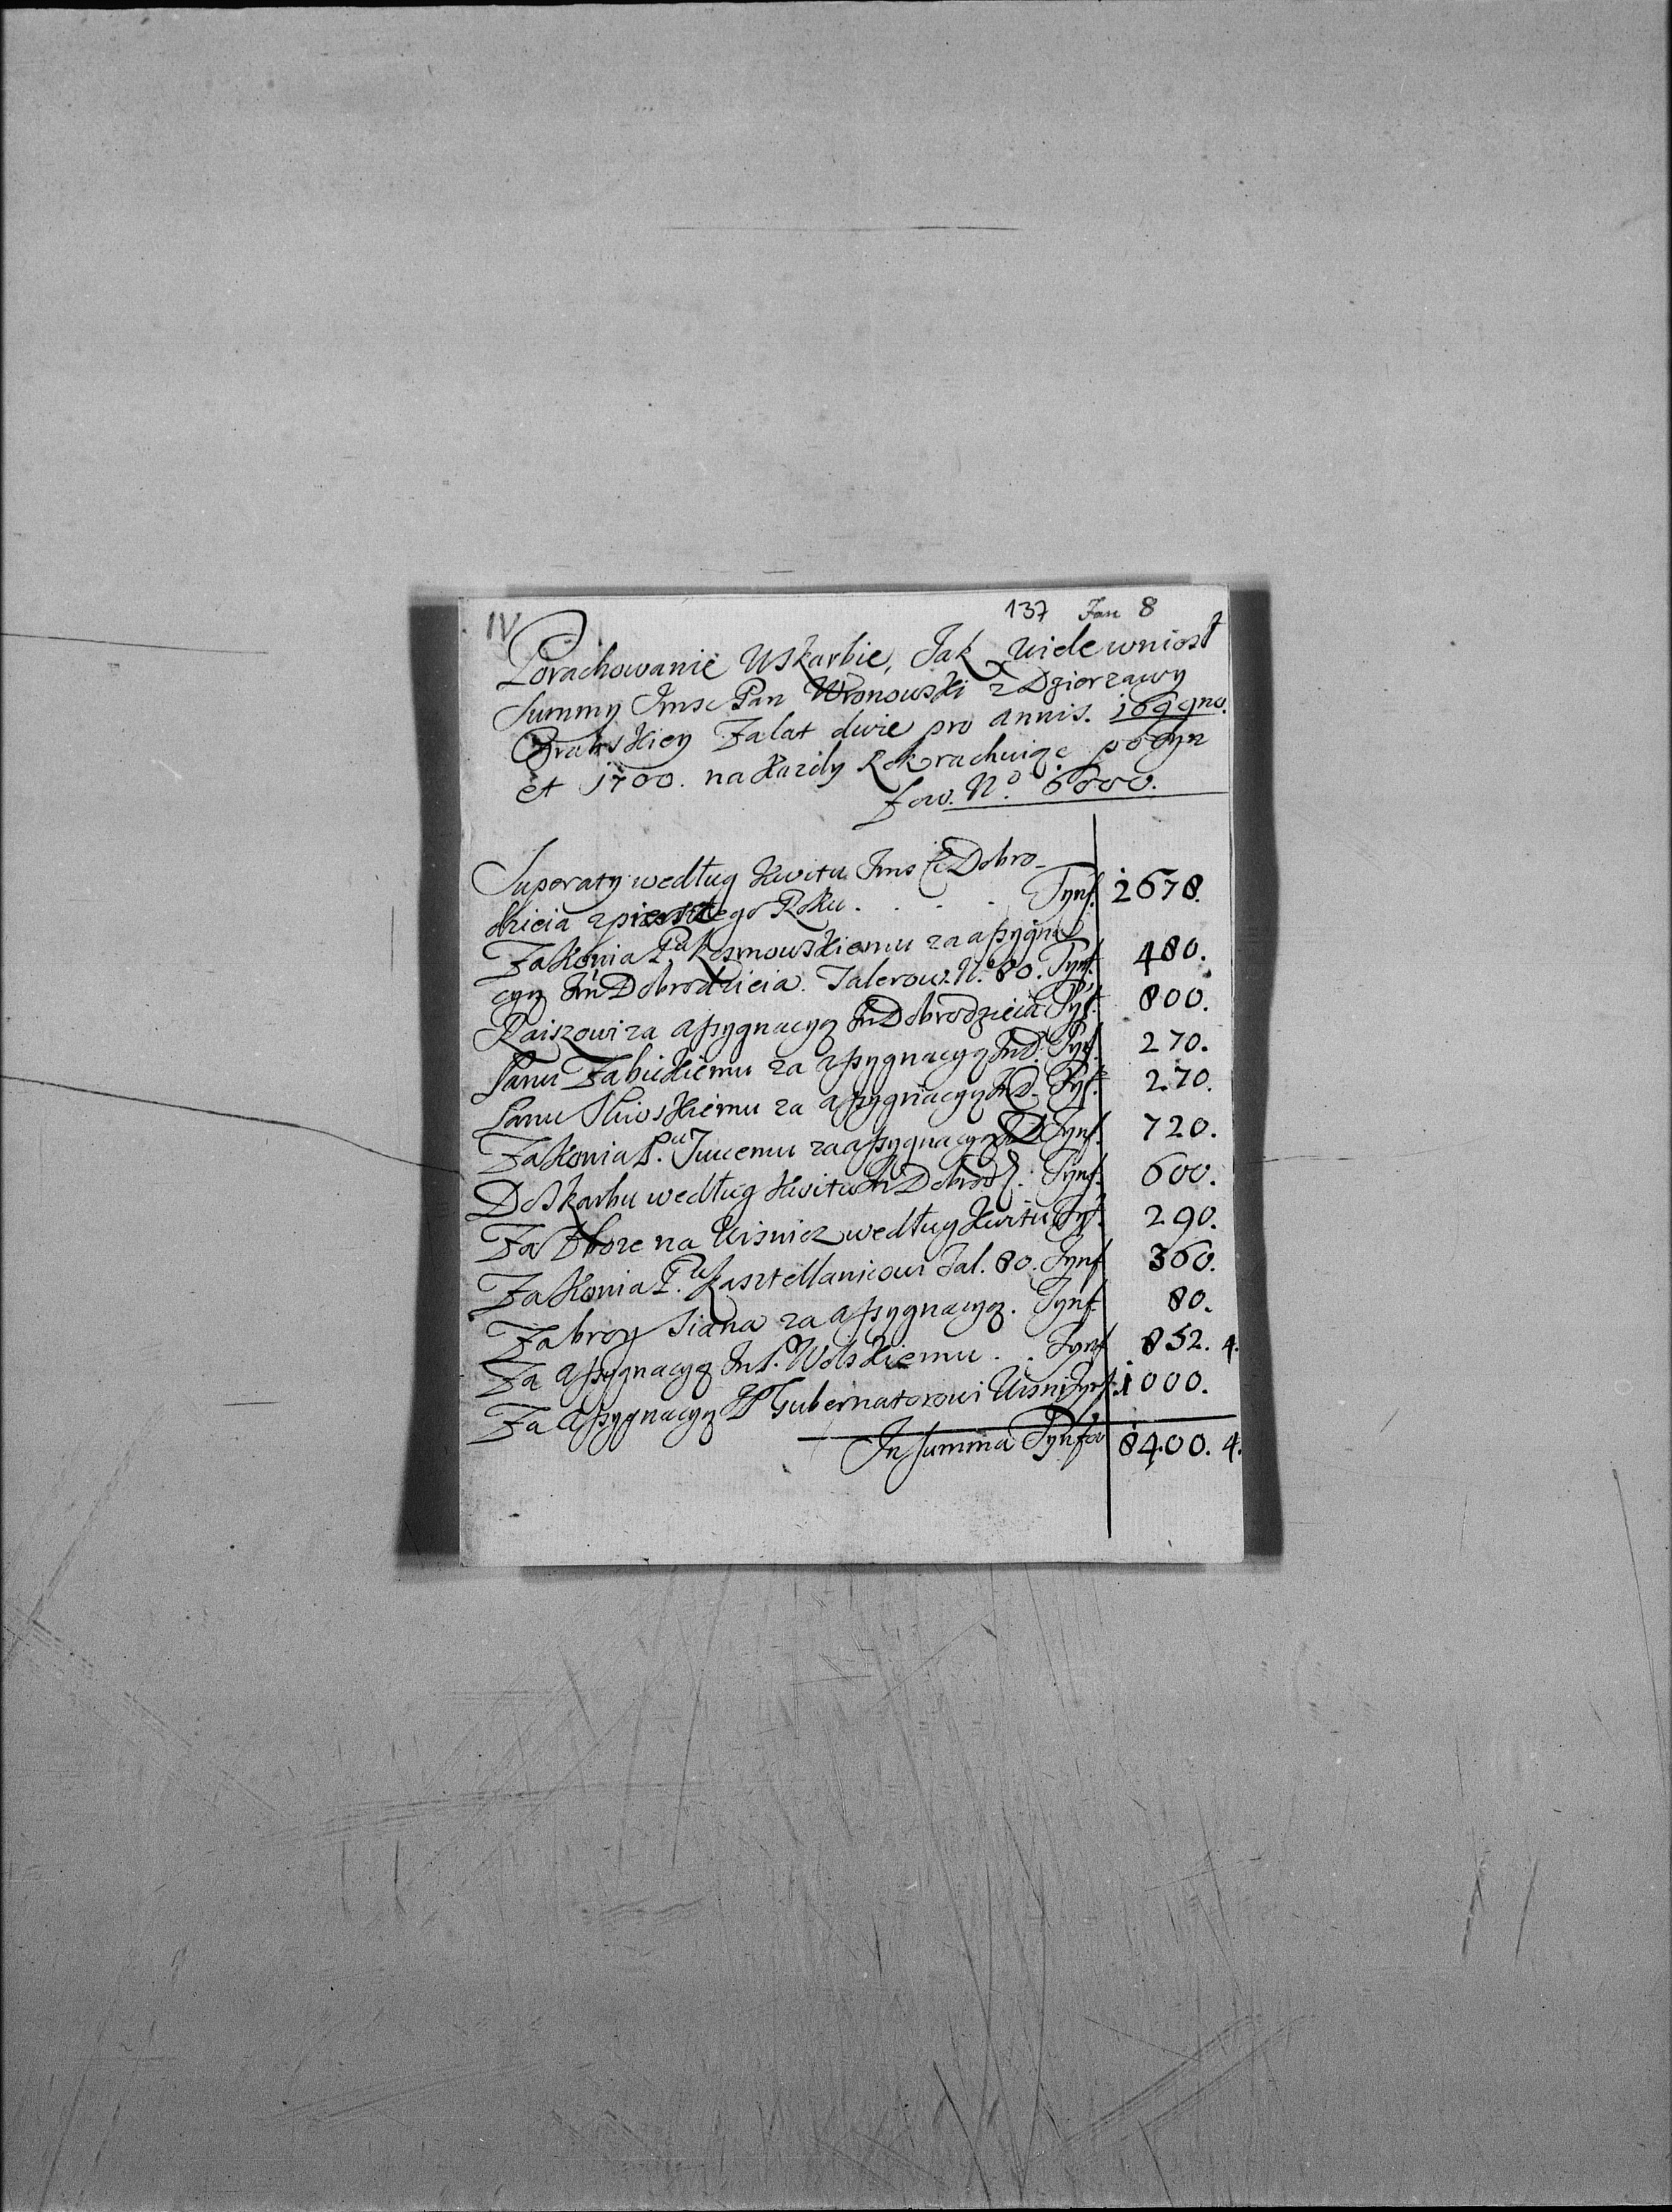 IV 137 Jan 8
Porachowanie Wskarbie, Jak Wiele wniosł
Summy Jmsc Pan Wronowski z Dzierzawy
za lat dwie pro Annis. 1699no.
et 1700. na Kazdy Rok rachuiąc po Tyn
fow. No. 6000.
Superaty według Kwitu Jms Dobro-
dzieia z pierszego Roku . . . . Tynf. 2678.
Za Konia Pu Kosmowskiemu za assygna
cyą Jm Dobrodzieia. Talerow. No. 80. Tynf. 480.
Raiszowi za assygnacyą Jm Dobrodzieia Tyf. 800.
Panu Zabickiemu za assygnacyą JmD. Tyf. 270.
Panu za assygnacyą JmD. Tyf. 270.
Za Konia P. za assygnacyą Tynf. 720.
Do Skarbu według Kwitu Jm Dobrodz. Tynf. 600.
Za Zboze na Wisnicz według Kwitu Tyf. 290.
Za Konia P. Kasztellanicowi Tal. 80. Tynf 360.
Za brog Siana za assygnacyą. Tynf. 80.
Za assygnacyą Wolskiemu . . Tynf 852. 4.
Za assygnacyą Gubernatorowi Wisni Tynf. 1000.
In Summa Tynfo 8400. 4.